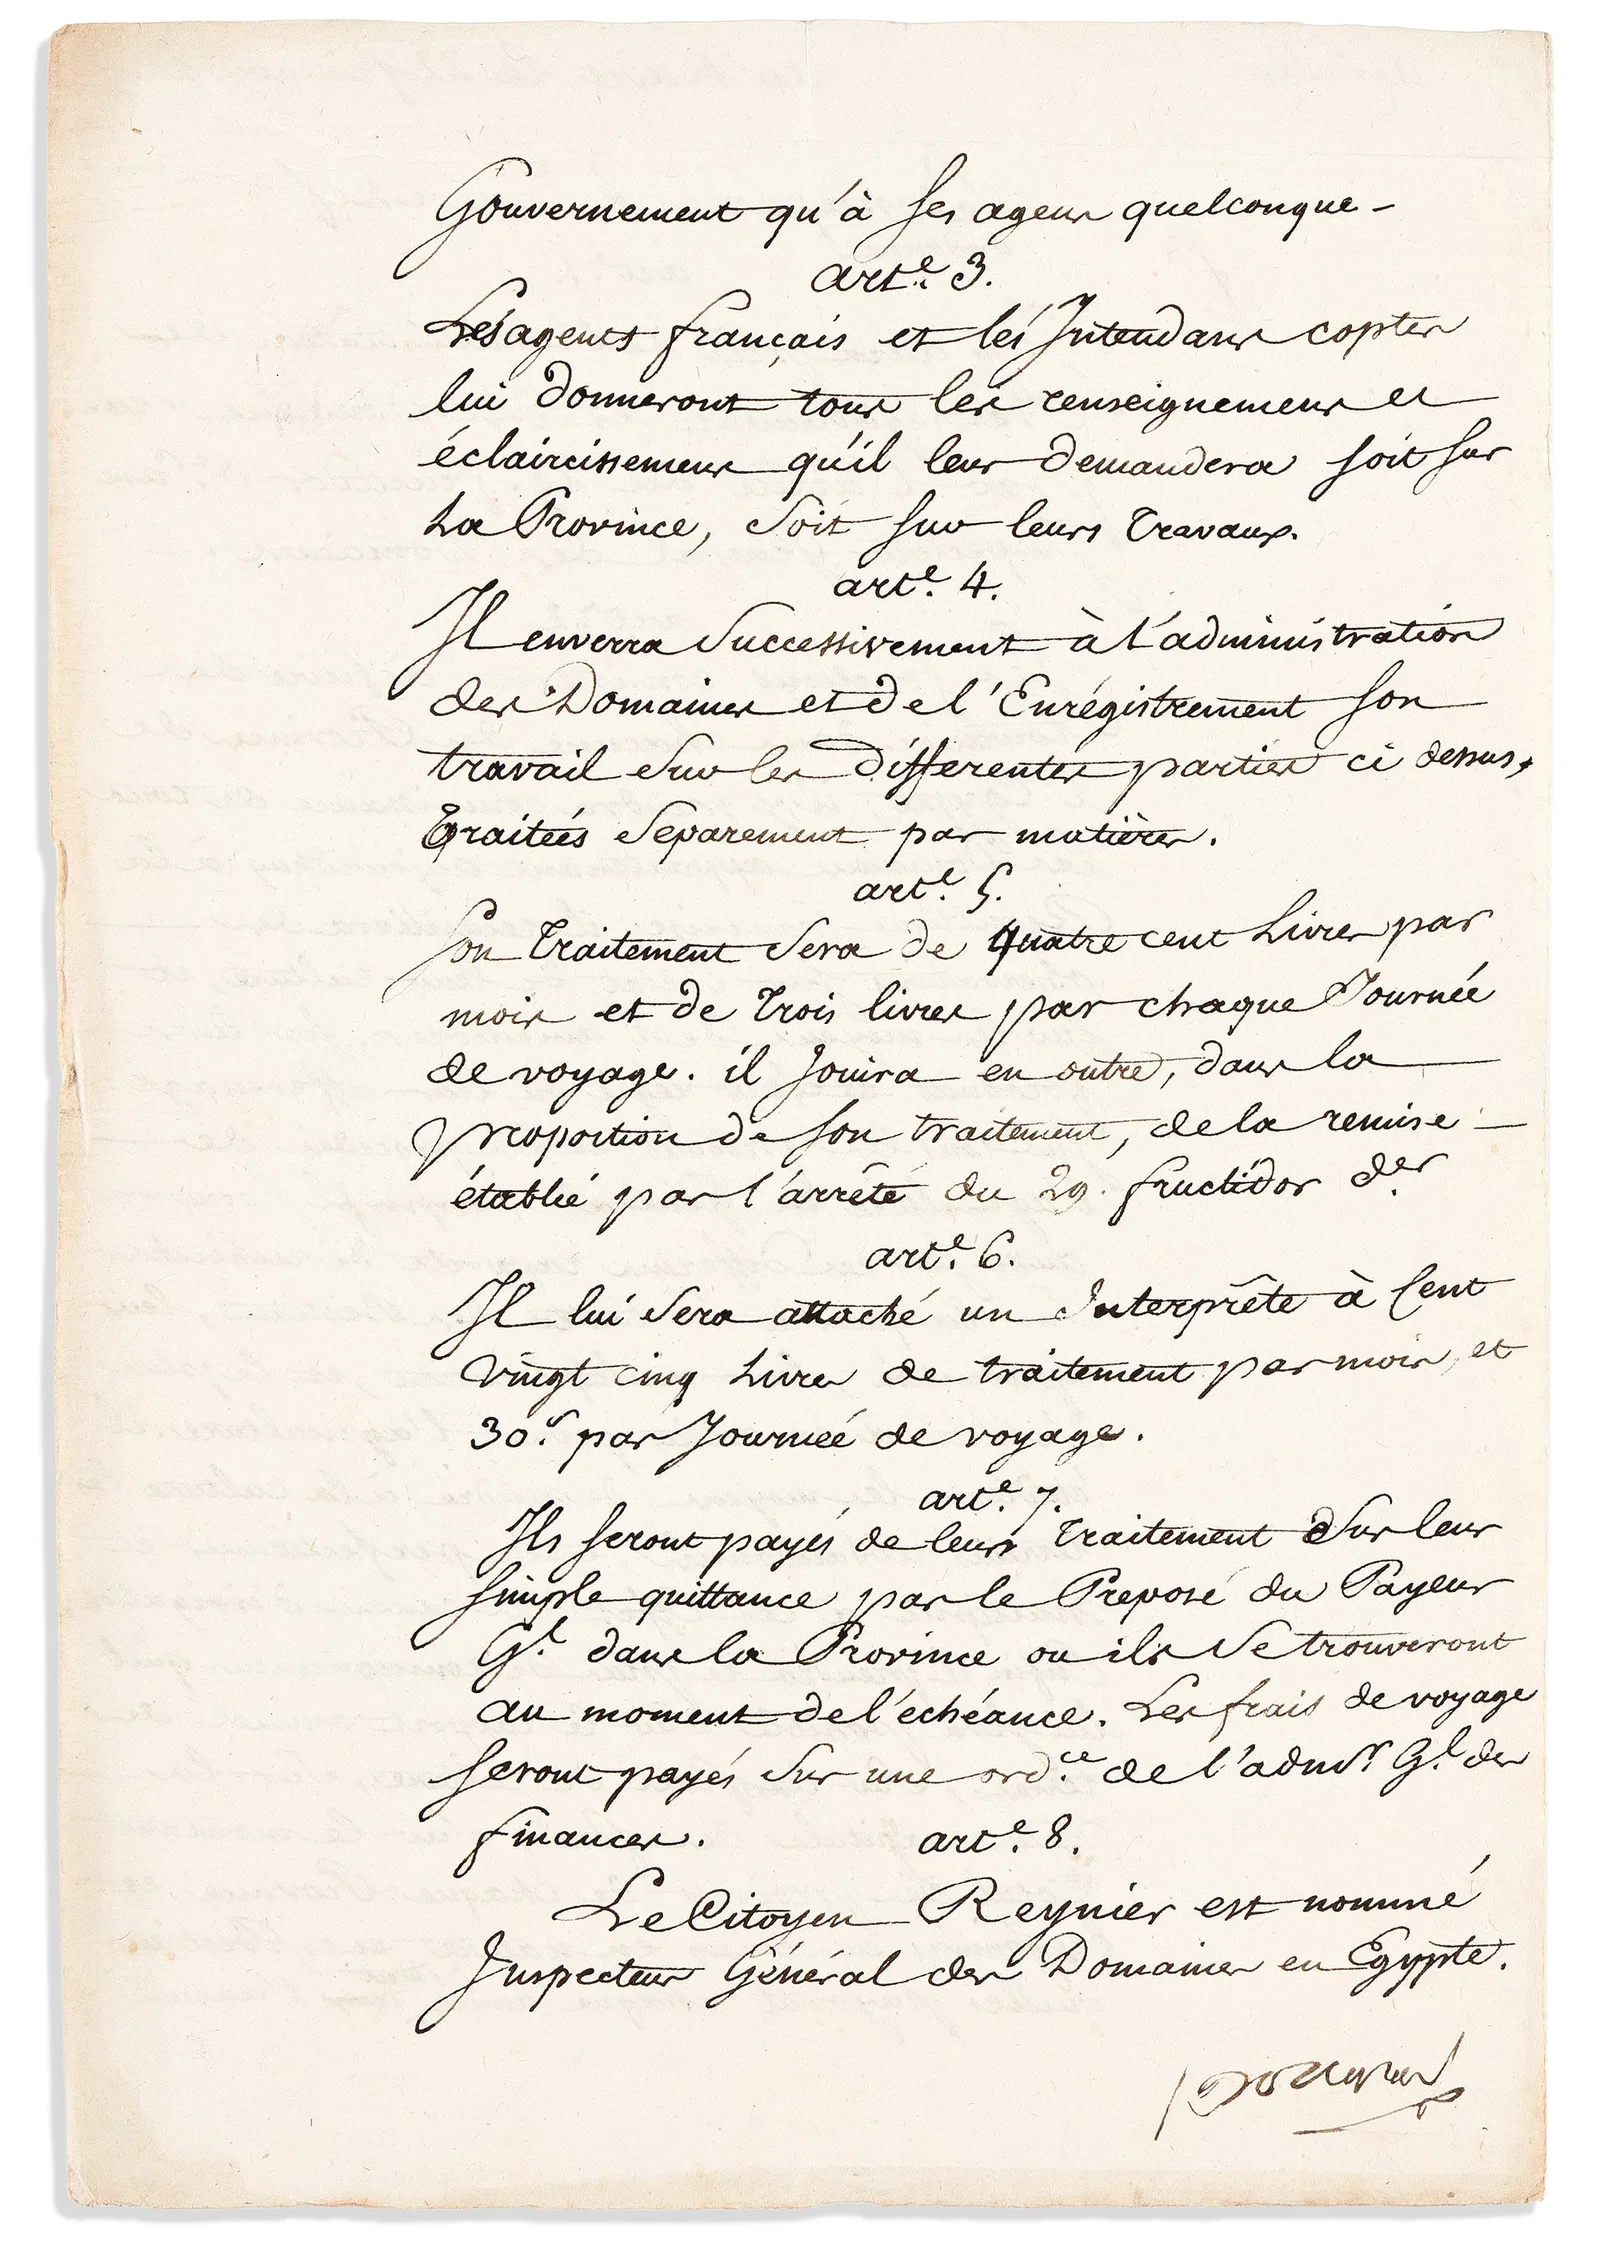 Gouvernement qu'à ses agens quelconque -
arte. 3.
Les agents français et les Intendans coptes
lui donneront tous les renseignemens et
éclaircissemens qu'il leur demandera soit sur
La Province, soit sur leurs travaux.
arte. 4.
Il enverra successivement à l'administration
des Domaines et de l'Enrégistrement son
travail sur les différentes parties ci dessus,
traitées séparement par matières.
arte. 5.
Son traitement sera de quatre cent Livres par
mois et de trois livres par chaque Journée
de voyage. il Jouira en outre, dans la
proportion de son traitement, de la remise -
établie par l'arrêté du 29. fructidor der.
arte. 6.
Il lui sera attaché un Interprête à Cent
vingt cinq Livres de traitement par mois, et
30s. par Journée de voyage.
arte. 7.
Ils seront payés de leurs traitement sur leur
simple quittance par le Préposé du Payeur
Gl. dans la Province ou ils se trouveront
au moment de l'échéance. Les frais de voyage
seront payés sur une ordce. de l'admr. Gl. des
finances.
arte. 8.
Le Citoyen Reynier est nommé
Inspecteur Général des Domaines en Egypte.